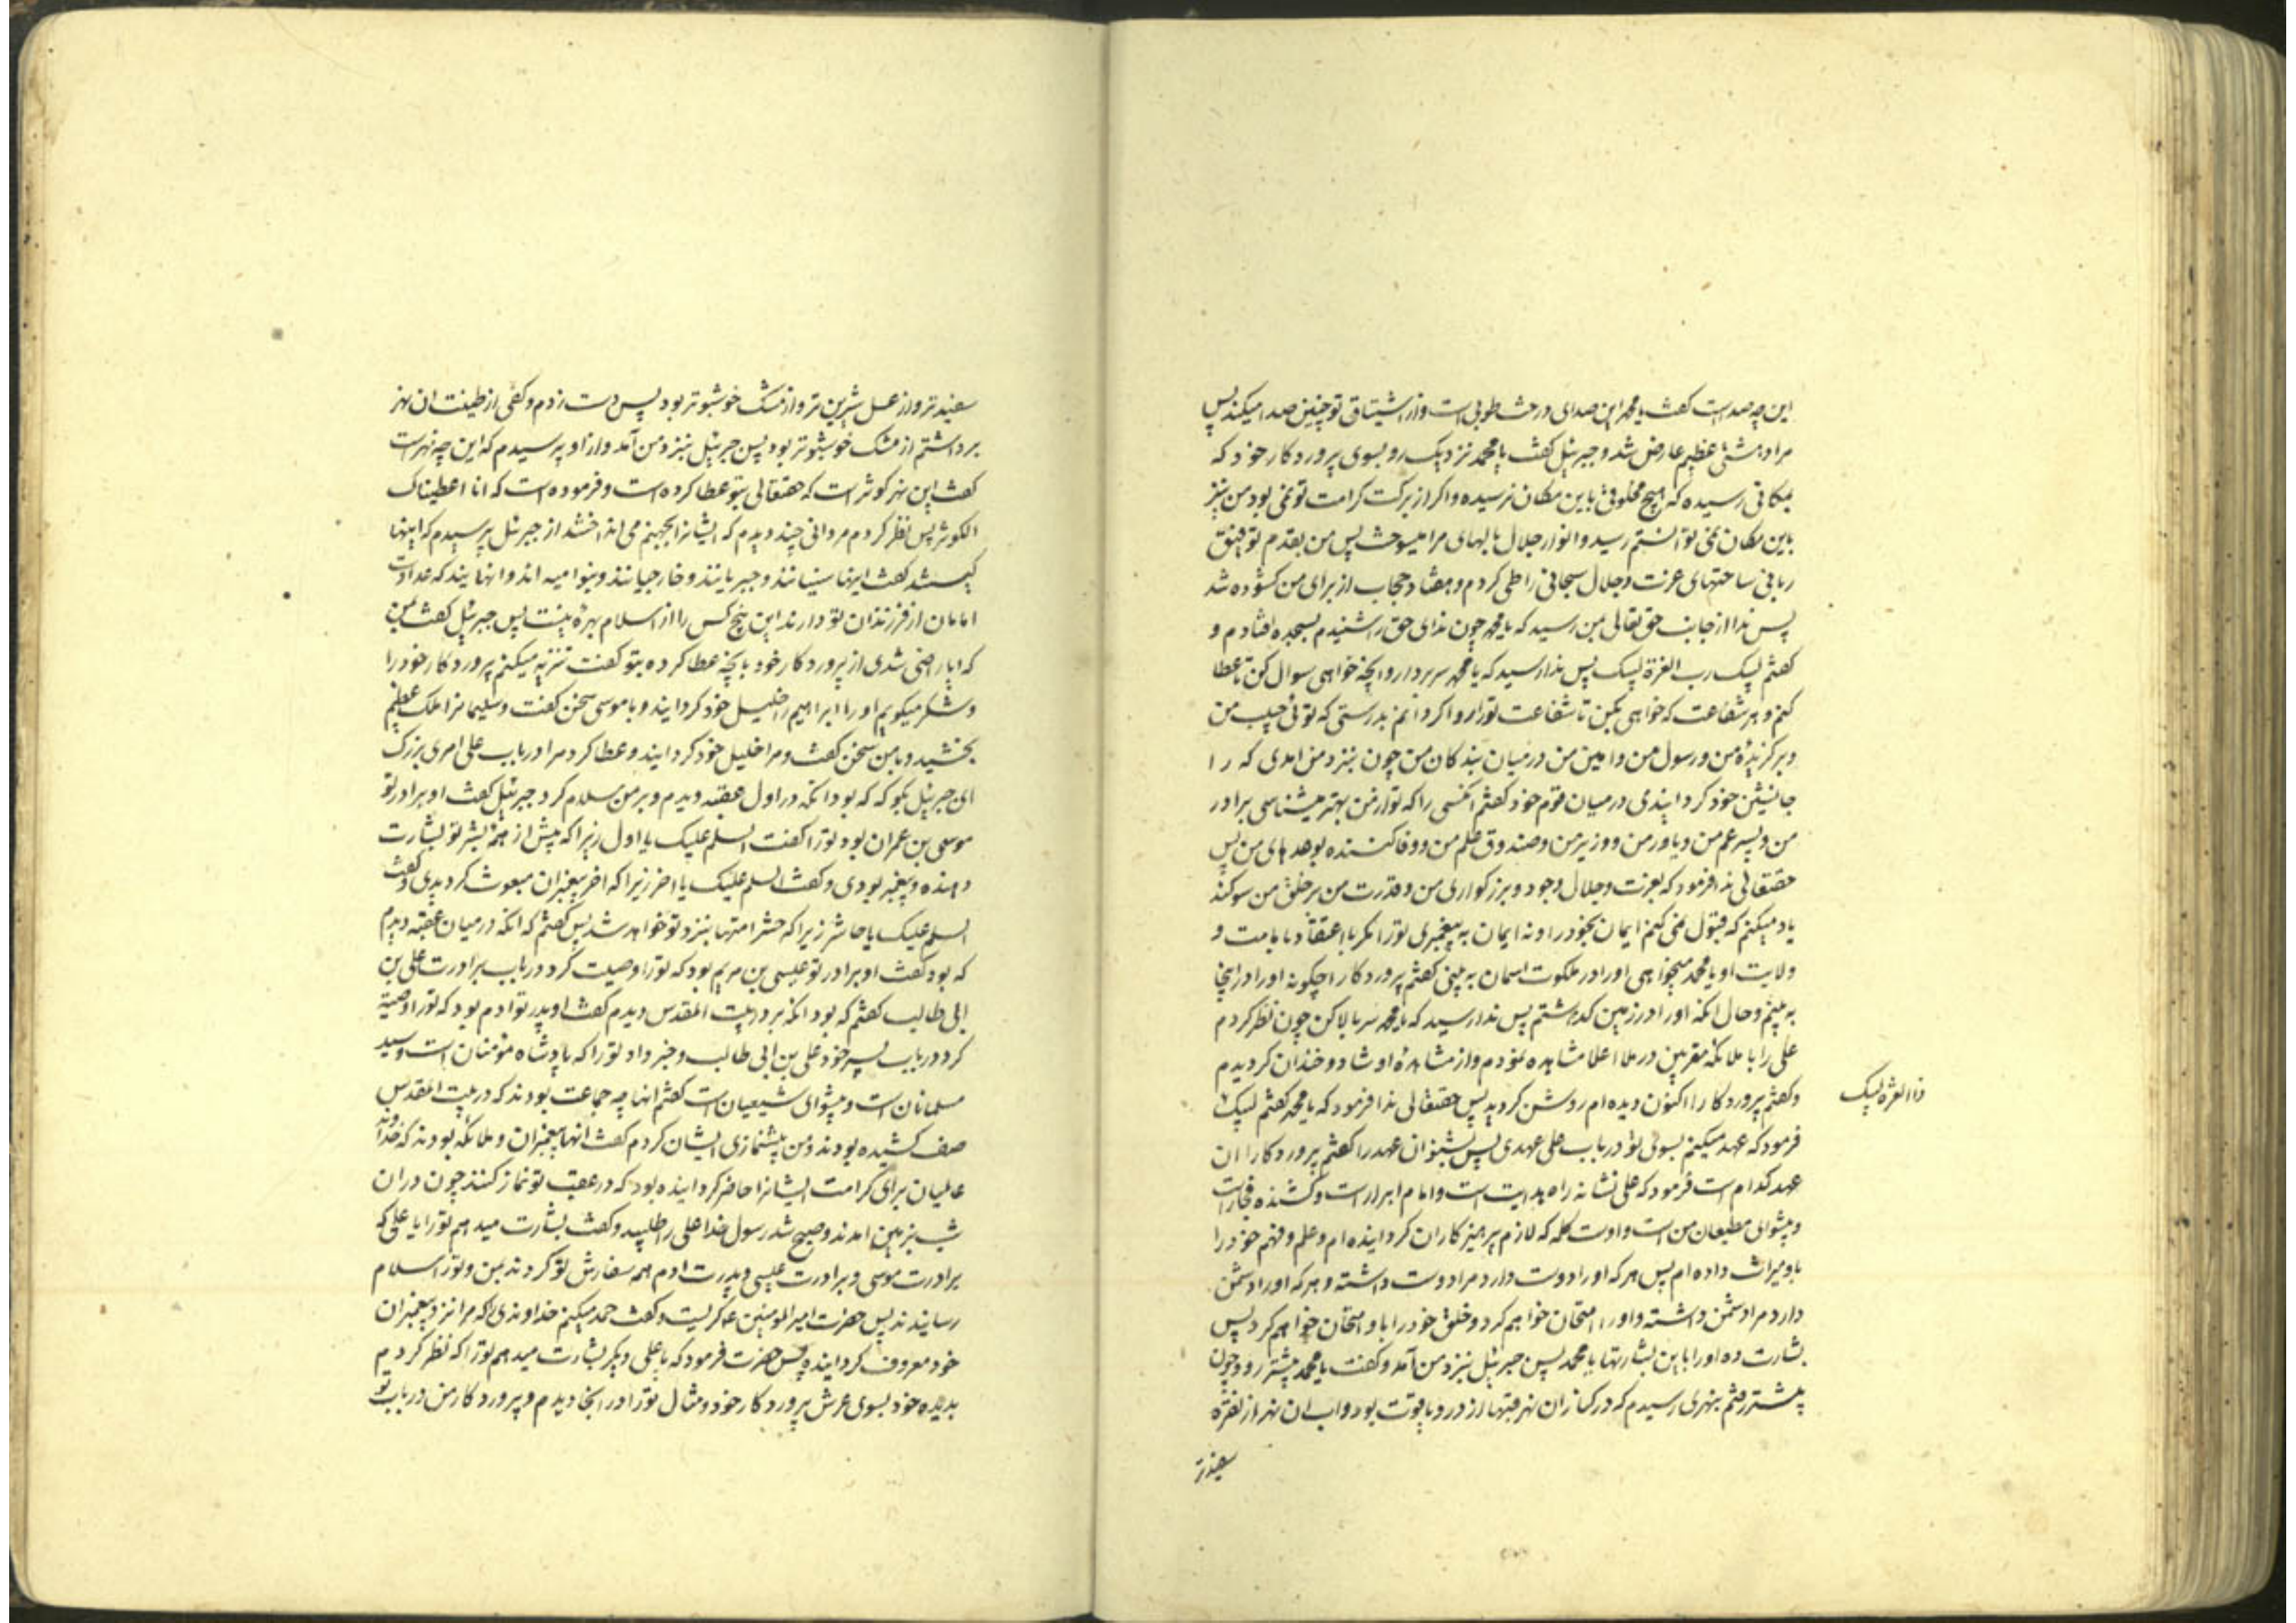 این چه صداست کفت یا محمد این صدای درخت طوبی است و از اشتیاق تو چنین صدا میکند پس
مرا دهشتی عظیم عارض شد و جبرئیل کفت یا محمد نزدیک رو بسوی پروردکار خود که
بمکانی رسیده که هیچ مخلوقی باین مکان نرسیده و اکر از برکت کرامت تو نمی بود من نیز
باین مکان نمی توانستم رسید و انوار جلال بالهای مرا میسوخت پس من بقدم توفیق
ربانی ساحتهای عزت و جلال سبحانی را طی کردم و هفتاد حجاب از برای من کشوده شد
پس ندا از جانب حق تعالی بمن رسید که یا محمد چون ندای حق را شنیدم بسجده افتادم و
کفتم لبیک رب العزة لبیک پس ندا رسید که یا محمد سر بردار و انچه خواهی سوال کن تا عطا
کنم و هر شفاعت که خواهی بکن تا شفاعت تو را روا کردانم بدرستی که توئی حبیب من
و برکزیدۀ من و رسول من و امین من در میان بندکان من چون بنزد من امدی که را
جانشین خود کردانیدی در میان قوم خود کفتم انکسی را که تو از من بهتر میشناسی برادر
من و پسر عم من و یاور من و وزیر من و صندوق علم من و وفا کننده بوعدهای من پس
حقتعالی ندا فرمود که بعزت و جلال و جود و بزرکواری من و قدرت من بر خلق من سوکند
یاد میکنم که قبول نمی کنم ایمان بخود را و نه ایمان به پیغمبری تو را مکر با اعتقاد بامامت و
ولایت او یا محمد میخواهی او را در ملکوت اسمان به بینی کفتم پروردکارا چکونه او را در اینجا
به بینم و حال انکه او را در زمین کذاشتم پس ندا رسید که یا محمد سر بالا کن چون نظر کردم
علی را با ملائکه مقربین در ملا اعلا مشاهده نمودم و از مشاهدۀ او شاد و خندان کردیدم
و کفتم پروردکارا اکنون دیده ام روشن کردید پس حقتعالی ندا فرمود که یا محمد کفتم لبیک
ذا العزه لبیک
فرمود که عهد میکنم بسوی تو در باب علی عهدی پس بشنو ان عهد را کفتم پروردکارا ان
عهد کدام است فرمود که علی نشانه راه هدایت است و امام ابرار است و کشنده فجار است
و پیشوای مطیعان من است و اوست کلمه که لازم پرهیزکاران کردانیده ام و علم و فهم خود را
باو میراث داده ام پس هر که او را دوست دارد مرا دوست داشته و هر که او را دشمن
دارد مرا دشمن داشته و او را امتحان خواهم کرد و خلق خود را با و امتحان خواهم کرد پس
بشارت ده او را باین بشارتها یا محمد پس جبرئیل بنزد من آمد و کفت یا محمد پیشتر رو و چون
پیشتر رفتم بنهری رسیدم که در کنار ان نهر قبتها از در و یاقوت بود و اب ان نهر از نقره
سفیدتر
سفیدتر و از عسل شیرین تر و از مشک خوشبوتر بود پس دست زدم و کفی از طینت ان نهر
برداشتم از مشک خوشبوتر بود پس جبرئیل بنزد من آمد و از او پرسیدم که این چه نهر است
کفت این نهر کوثر است که حقتعالی بتو عطا کرده است و فرموده است که انا اعطیناک
الکوثر پس نظر کردم مردانی چند دیدم که ایشانرا بجهنم می انداختند از جبرئل پرسیدم که اینها
کیستند کفت اینها سنیانند و جبریانند و خارجیانند و بنو امیه اند و انهایند که عداوت
امامان از فرزندان تو دارند این پنج کس را از اسلام بهرۀ نیست پس جبرئیل کفت بمن
که ایا راضی شدی از پروردکار خود بانچه عطا کرده بتو کفت تنزیه میکنم پروردکار خود را
و شکر میکویم او را ابراهیم را خلیل خود کردانید و با موسی سخن کفت و سلیمانرا ملک عظیم
بخشید و با من سخن کفت و مرا خلیل خود کردانید و عطا کرد مرا در باب علی امری بزرک
ای جبرئیل بکو که که بود انکه در اول عقبه دیدم و بر من سلام کرد جبرئیل کفت او برادر تو
موسی بن عمران بود تو را کفت السلم علیک یا اول زیرا که پیش از همه بشر تو بشارت
دهنده و پیغمبر بودی و کفت السلم علیک یا اخر زیرا که اخر پیغمبران مبعوث کردیدی و کفت
السلم علیک یا حاشر زیرا که حشر امتها بنزد تو خواهد شد پس کفتم که انکه در میان عقبه دیدم
که بود کفت او برادر تو عیسی بن مریم بود که تو را وصیت کرد در باب برادرت علی بن
ابی طالب کفتم که بود انکه بر در بیت المقدس دیدم کفت او پدر تو ادم بود که تو را وصیة
کرد در باب پسر خود علی بن ابی طالب و خبر داد تو را که پادشاه مؤمنان است و سید
مسلمانان است و پیشوای شیعیان است کفتم انها چه جماعت بودند که در بیت المقدس
صف کشیده بودند و من پیشنمازی ایشان کردم کفت انها پیغمبران و ملائکه بودند که خداوند
عالمیان برای کرامت ایشانرا حاضر کردانیده بود که در عقب تو نماز کنند چون در ان
شب بزمین امدند و صبح شد رسول خدا علی را طلبید و کفت بشارت میدهم تو را یا علی که
برادرت موسی و برادرت عیسی و پدرت ادم همه سفارش تو کردند بمن و تو را سلام
رسانیدند پس حضرت امیر المومنین ع کریست و کفت حمد میکنم خداوندی را که مرا نزد پیغمبران
خود معروف کردانیده پس حضرت فرمود که یا علی دیکر بشارت میدهم تو را که نظر کردم
بدیده خود بسوی عرش پروردکار خود و مثال تو را در انجا دیدم و پروردکار من در باب تو